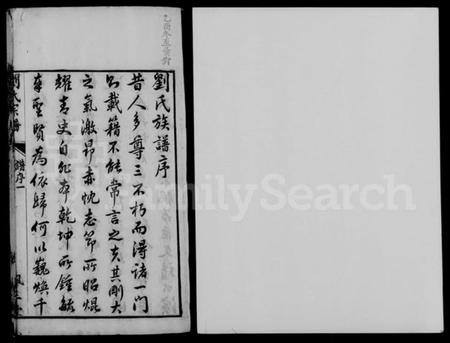 劉氏族譜序
昔人多尊三不朽而得諸一門
只載籍不能常言之矣其剛大
之氣激昂赤忱志節所昭焜
耀青史自非存乾坤所鍾毓
奉聖賢為依歸何以巍煥千
譜序一
FamilySearch